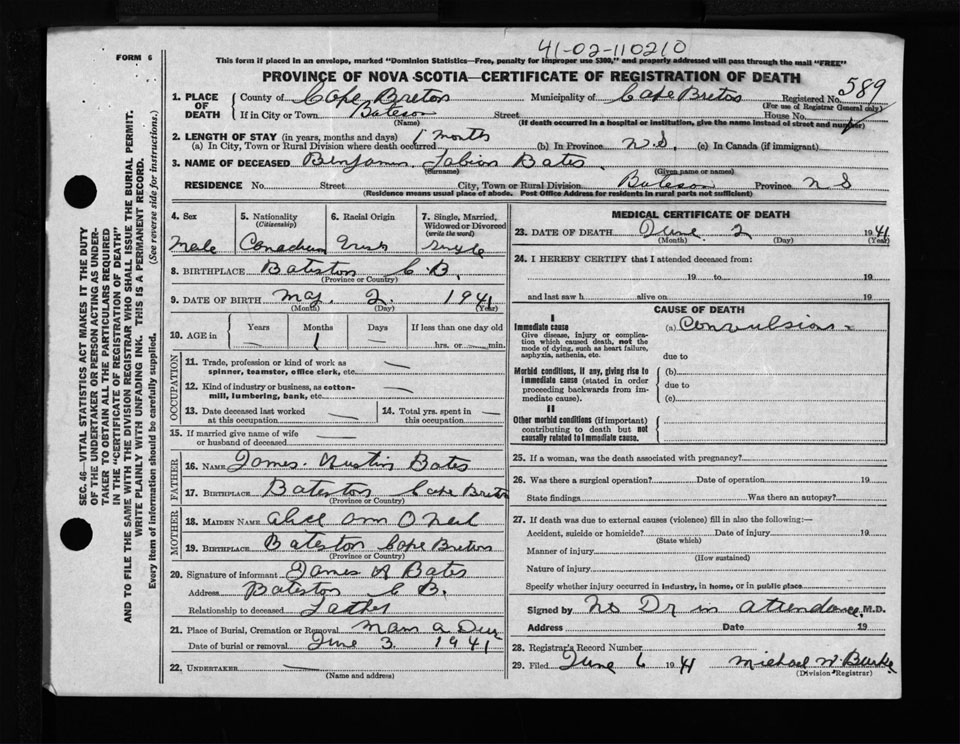 41-02-110210
FORM 6
This form if placed in an envelope, marked "Dominion Statistics—Free, penalty for improper use $300," and properly addressed will pass through the mail "FREE"
PROVINCE OF NOVA SCOTIA—CERTIFICATE OF REGISTRATION OF DEATH
589
1. PLACE OF DEATH
County of Cape Breton Municipality of Cape Breton Registered No.
(For use of Registrar General only)
If in City or Town Bateson Street House No.
(Name) (If death occurred in a hospital or institution, give the name instead of street and number)
2. LENGTH OF STAY (in years, months and days) 1 months
(a) In City, Town or Rural Division where death occurred (b) In Province N.S. (c) In Canada (if immigrant)
3. NAME OF DECEASED Benjamin Fabian Bates
(Surname) (Given name or names)
RESIDENCE No. Street City, Town or Rural Division Bateson Province N S
(Residence means usual place of abode. Post Office Address for residents in rural parts not sufficient)
4. Sex 5. Nationality (Citizenship) 6. Racial Origin 7. Single, Married, Widowed or Divorced (write the word)
Male Canadian Irish single
8. BIRTHPLACE Bateston C.B.
(Province or Country)
9. DATE OF BIRTH May 2 1941
(Month) (Day) (Year)
10. AGE in Years Months Days If less than one day old
— 1 — hrs. or min.
OCCUPATION
11. Trade, profession or kind of work as spinner, teamster, office clerk, etc. —
12. Kind of industry or business, as cotton-mill, lumbering, bank, etc. —
13. Date deceased last worked at this occupation — 14. Total yrs. spent in this occupation —
15. If married give name of wife or husband of deceased —
FATHER
16. NAME James Austin Bates
17. BIRTHPLACE Bateston Cape Breton
(Province or Country)
MOTHER
18. MAIDEN NAME Alice Ann O Neil
19. BIRTHPLACE Bateston Cape Breton
(Province or Country)
20. Signature of informant James A Bates
Address Bateston C B.
Relationship to deceased Father
21. Place of Burial, Cremation or Removal Main a Dieu
Date of burial or removal June 3 1941
22. UNDERTAKER —
(Name and address)
MEDICAL CERTIFICATE OF DEATH
23. DATE OF DEATH June 2 1941
(Month) (Day) (Year)
24. I HEREBY CERTIFY that I attended deceased from:
19 to 19
and last saw h alive on 19
CAUSE OF DEATH
I
Immediate cause
Give disease, injury or complication which caused death, not the mode of dying, such as heart failure, asphyxia, asthenia, etc.
(a) Convulsions
due to
Morbid conditions, if any, giving rise to immediate cause (stated in order proceeding backwards from immediate cause).
(b)
due to
(c)
II
Other morbid conditions (if important) contributing to death but not causally related to immediate cause.
25. If a woman, was the death associated with pregnancy?
26. Was there a surgical operation? Date of operation 19
State findings Was there an autopsy?
27. If death was due to external causes (violence) fill in also the following:—
Accident, suicide or homicide? Date of injury 19
(State which)
Manner of injury
(How sustained)
Nature of injury
Specify whether injury occurred in industry, in home, or in public place
Signed by No Dr in attendance, M.D.
Address Date 19
28. Registrar's Record Number
29. Filed June 6 1941 Michael W. Burke
(Division Registrar)
SEC. 46—VITAL STATISTICS ACT MAKES IT THE DUTY
OF THE UNDERTAKER OR PERSON ACTING AS UNDER-
TAKER TO OBTAIN ALL THE PARTICULARS REQUIRED
IN THE "CERTIFICATE OF REGISTRATION OF DEATH"
AND TO FILE THE SAME WITH THE DIVISION REGISTRAR WHO SHALL ISSUE THE BURIAL PERMIT.
WRITE PLAINLY WITH UNFADING INK. THIS IS A PERMANENT RECORD.
Every item of information should be carefully supplied. (See reverse side for instructions.)